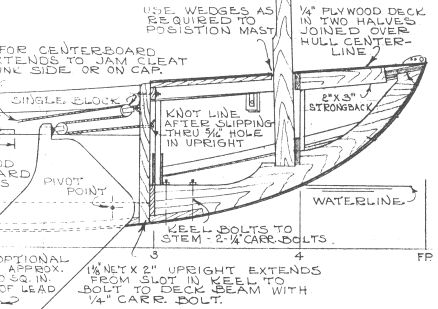 USE WEDGES AS
REQUIRED TO
POSISTION MAST
1/4" PLYWOOD DECK
IN TWO HALVES
JOINED OVER
HULL CENTER-
LINE
FOR CENTERBOARD
TENDS TO JAM CLEAT
NK SIDE OR ON CAP.
SINGLE BLOCK
KNOT LINE
AFTER SLIPPING
THRU 5/16" HOLE
IN UPRIGHT
2" X 3"
STRONGBACK
OD
ARD
S
PIVOT
POINT
WATERLINE
KEEL BOLTS TO
STEM - 2-1/4" CARR. BOLTS.
3
4
F.P.
OPTIONAL
APPROX.
SQ. IN.
OF LEAD
NET X 2" UPRIGHT EXTENDS
FROM SLOT IN KEEL TO
BOLT TO DECK BEAM WITH
1/4" CARR. BOLT.